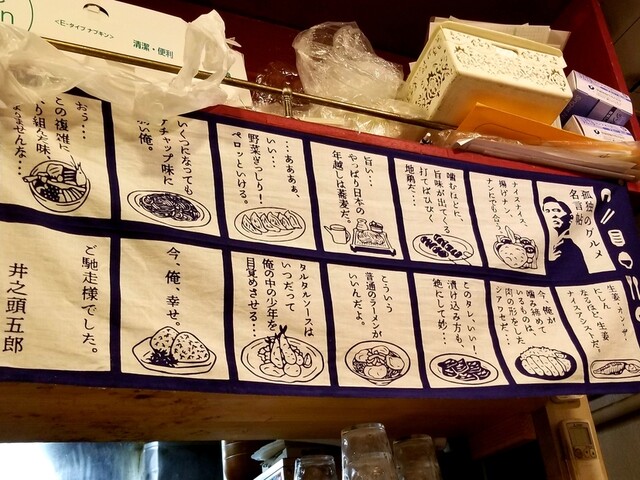 <E-タイプ ナフキン>
清潔・便利
孤独のグルメ
名言
ナイスナイス。
揚げナン、
ナンにでも合う。
噛むほどに、
旨味が出てくる
打てばひびく
地鶏だ…
旨い…
やっぱり日本の
年越しは蕎麦だ。
…あぁあぁ、
いい…
野菜ぎっしり!
ペロッといける。
いくつになっても
チャップ味に
弱い俺。
おぅ…
この複雑に
入り組んだ味、
たまりませんな…
生姜
ナイスアシストだ。
今、俺が
噛み締めて
いるものは、
肉の形をした
シアワセだ…
このタレ、いい!
漬け込み方も
絶にして妙…
こういう
普通のラーメンが
いいんだよ。
タルタルソースは
いつだって
俺の中の少年を
目覚めさせる…
今、俺、幸せ。
ご馳走様でした。
井之頭五郎